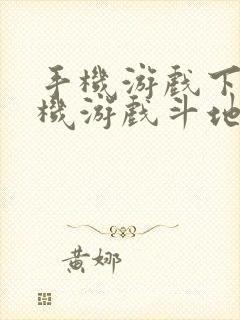 手機游戲下
機游戲斗地
黃娜